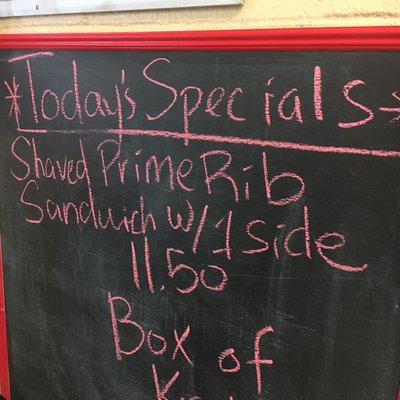 *Today's Specials*
Shaved Prime Rib
Sandwich w/ 1 side
11.50
Box of